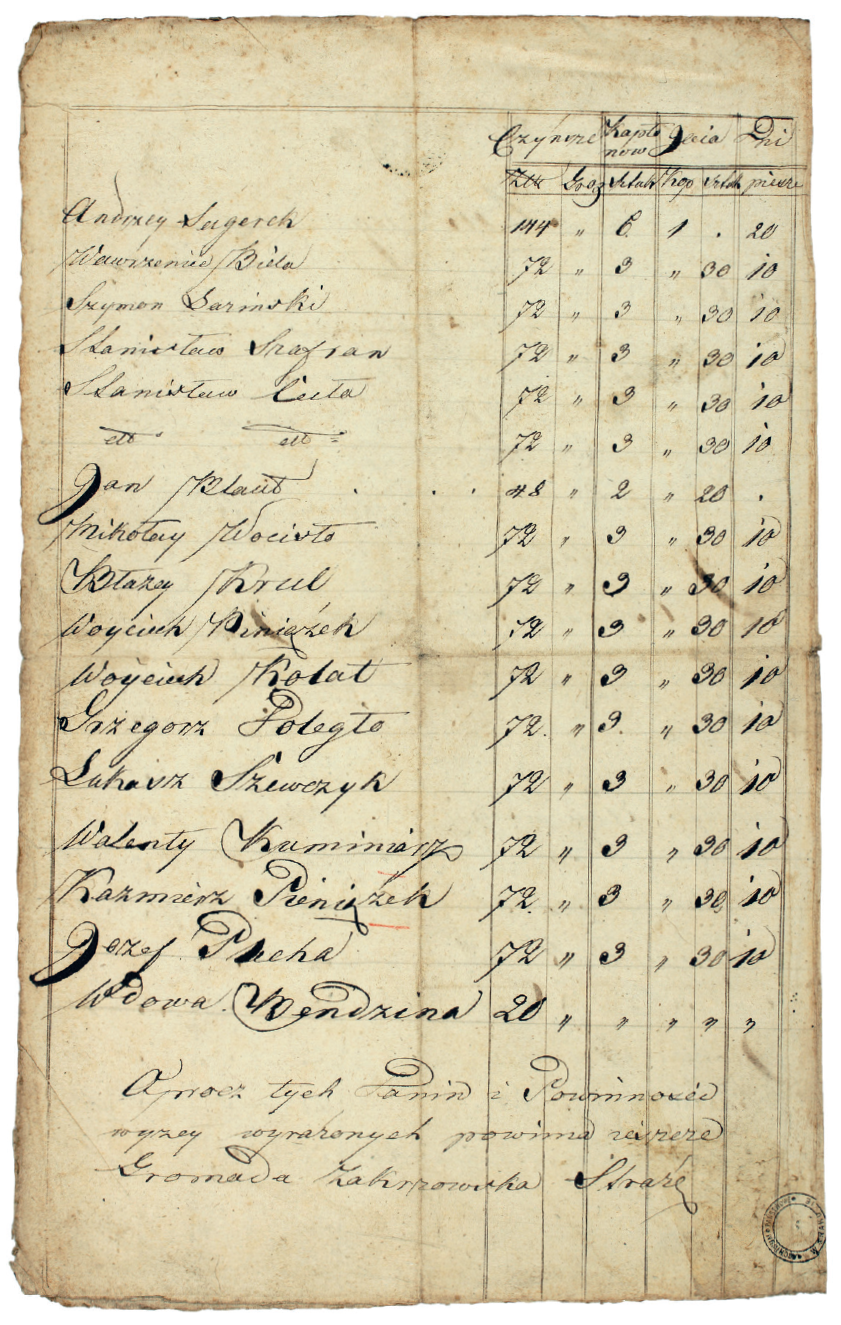 Czynsze Kapło nów Jaia Dni
Złtt Grosz Sztuk Kop Sztuk piesze
Andrzey Sagerek 144 " 6 1 . 20
Wawrzeniec Biela 72 " 3 " 30 10
Szymon 72 " 3 " 30 10
Stanisław Szafran 72 " 3 " 30 10
Stanisław 72 " 3 " 30 10
dtto dtto 72 " 3 " 30 10
Jan Błaut . . . 48 " 2 " 20 .
Mikołay Wocisło 72 " 3 " 30 10
Błażey Krul 72 " 3 " 30 10
Woyciech Piniążek 72 " 3 " 30 10
Woyciech Kołat 72 " 3 " 30 10
Grzegorz Poległo 72. " 3. " 30 10
Łukasz Szewczyk 72 " 3 " 30 10
Walenty Kuminiarz 72 " 3 " 30 10
Kazmierz Pieniążek 72. " 3 " 30 10
Jozef Płucha 72 " 3 " 30 10
Wdowa Bendzina 20 " " " " "
Oprocz tych Danin i Powinności
wyżey wyrażonych powinna ieszcze
Gromada Zakrzowska Straże